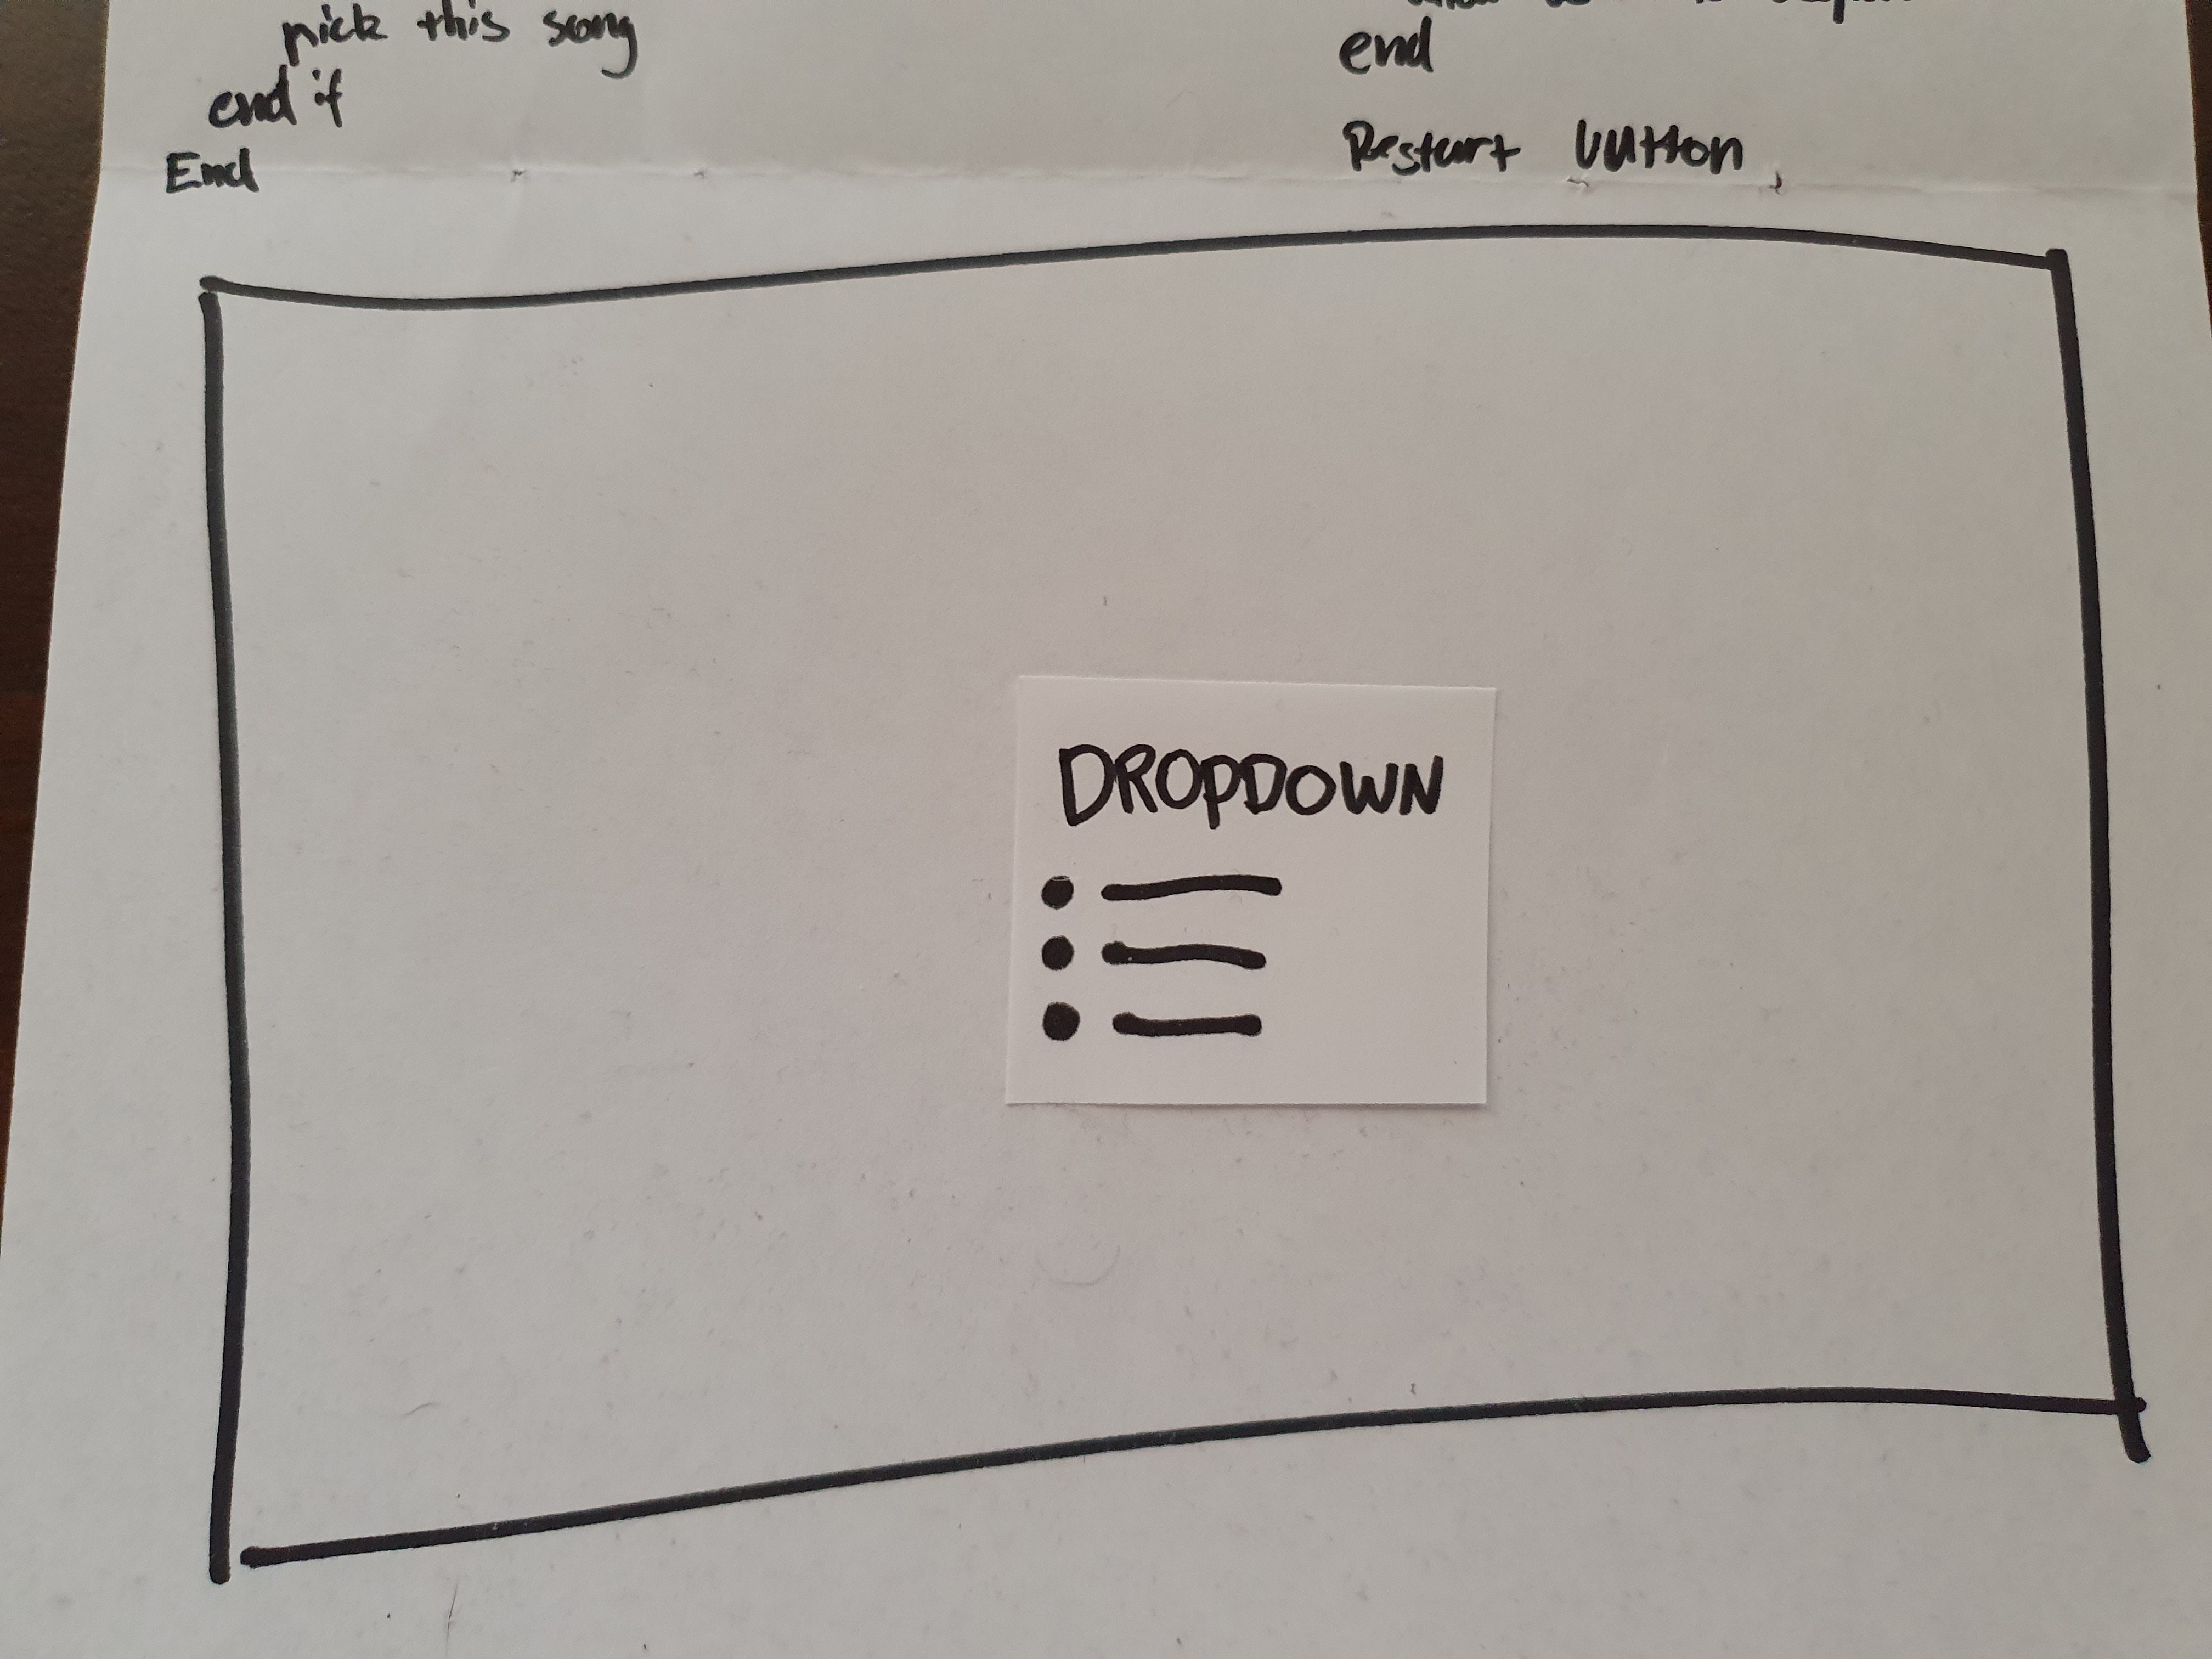 pick this song
end if
End
end
Restart button
DROPDOWN